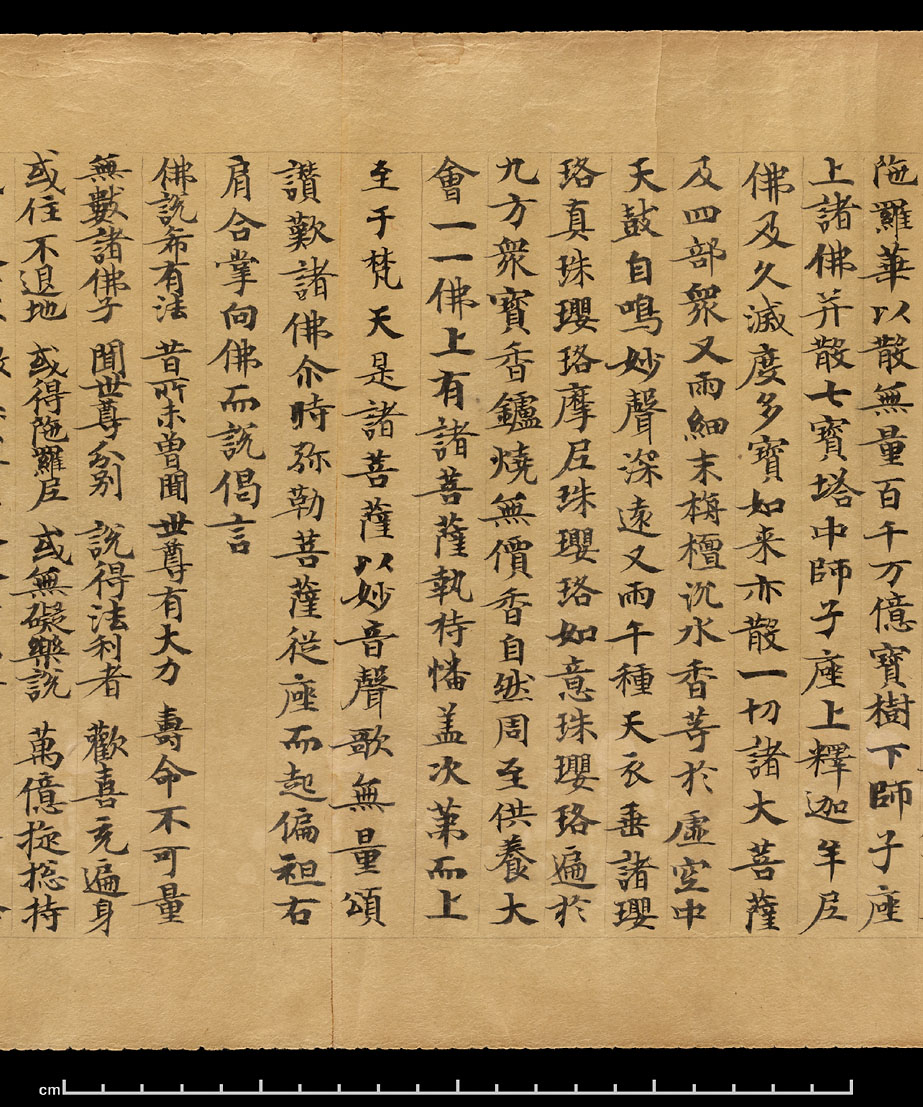 陁羅華以散無量百千万億寶樹下師子座
上諸佛并散七寶塔中師子座上釋迦牟尼
佛及久滅度多寶如来亦散一切諸大菩薩
及四部衆又雨細末栴檀沉水香等於虛空中
天鼓自鳴妙聲深遠又雨千種天衣垂諸瓔
珞真珠瓔珞摩尼珠瓔珞如意珠瓔珞遍於
九方衆寶香鑪燒無價香自然周至供養大
會一一佛上有諸菩薩執持幡盖次第而上
至于梵天是諸菩薩以妙音聲歌無量頌
讚歎諸佛尒時弥勒菩薩從座而起偏袒右
肩合掌向佛而說偈言
佛說希有法 昔所未曾聞 世尊有大力 壽命不可量
無數諸佛子 聞世尊分別 說得法利者 歡喜充遍身
或住不退地 或得陁羅尼 或無礙樂說 萬億旋揔持